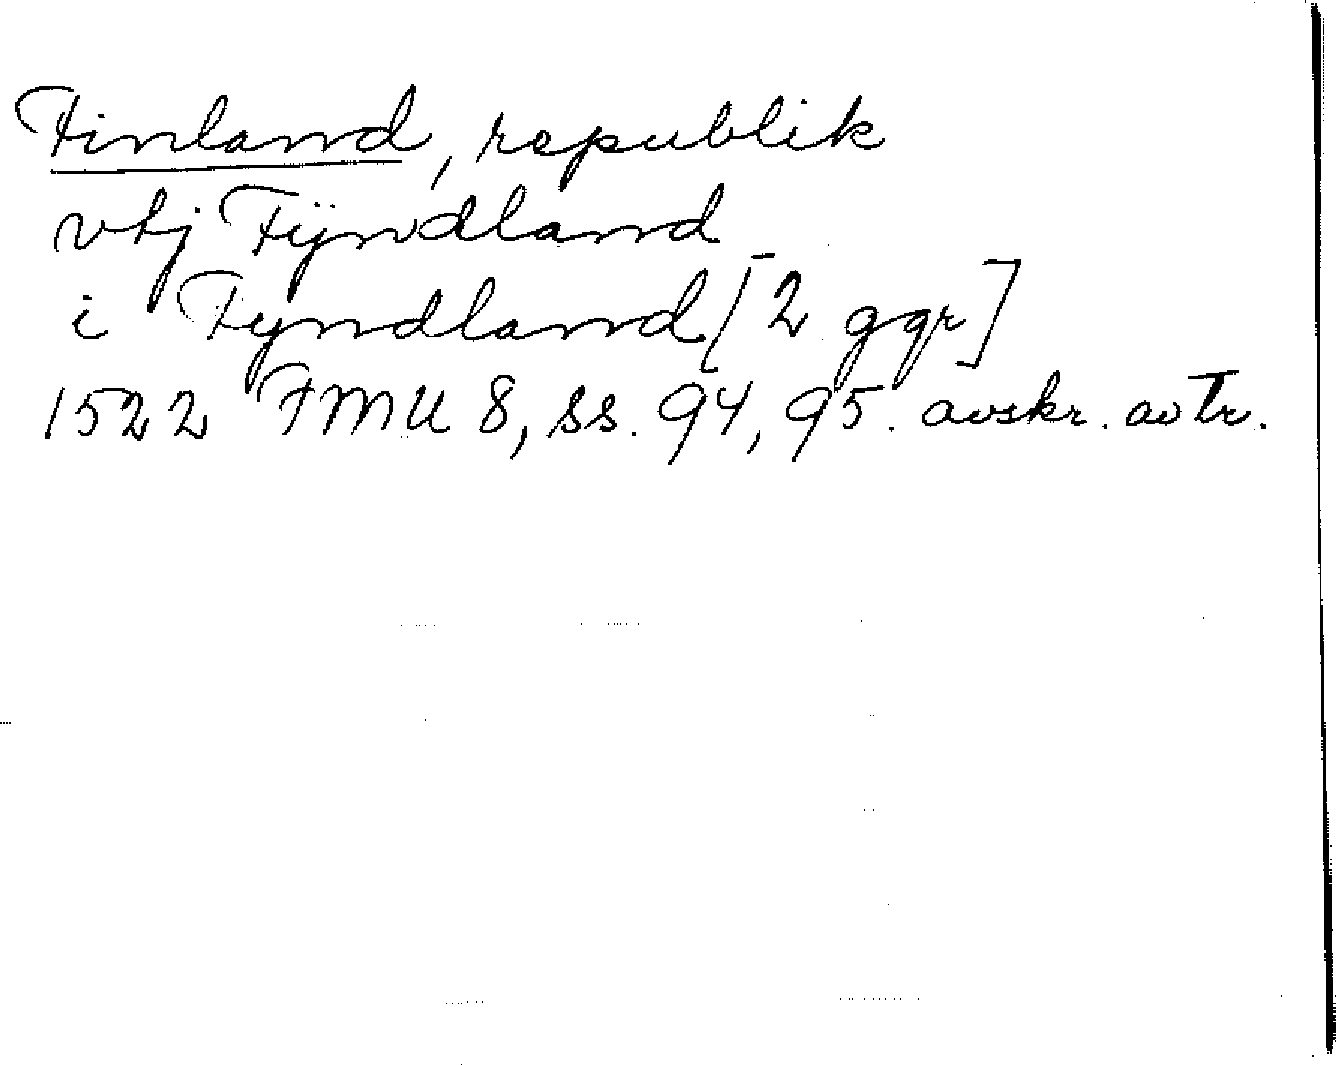 Finland, republik
vtj Fÿndland
i Fyndland [2 ggr]
1522 FMU 8, ss. 94, 95. avskr. av Tr.